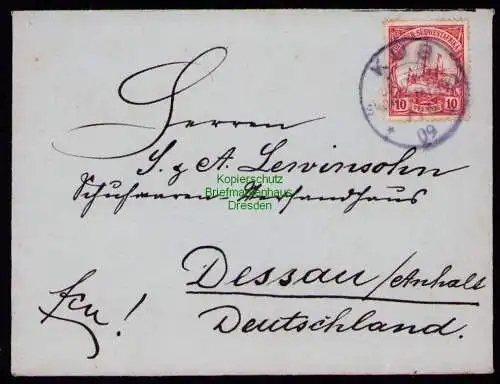 DEUTSCH-SÜDWESTAFRIKA
10 PFENNIG 10
KUB
09
Herren
S. & A. Lewinsohn
Kopierschutz
Briefmarkenhaus
Dresden
Schuhwaren-Versandhaus
Dessau/Anhalt
Deutschland.